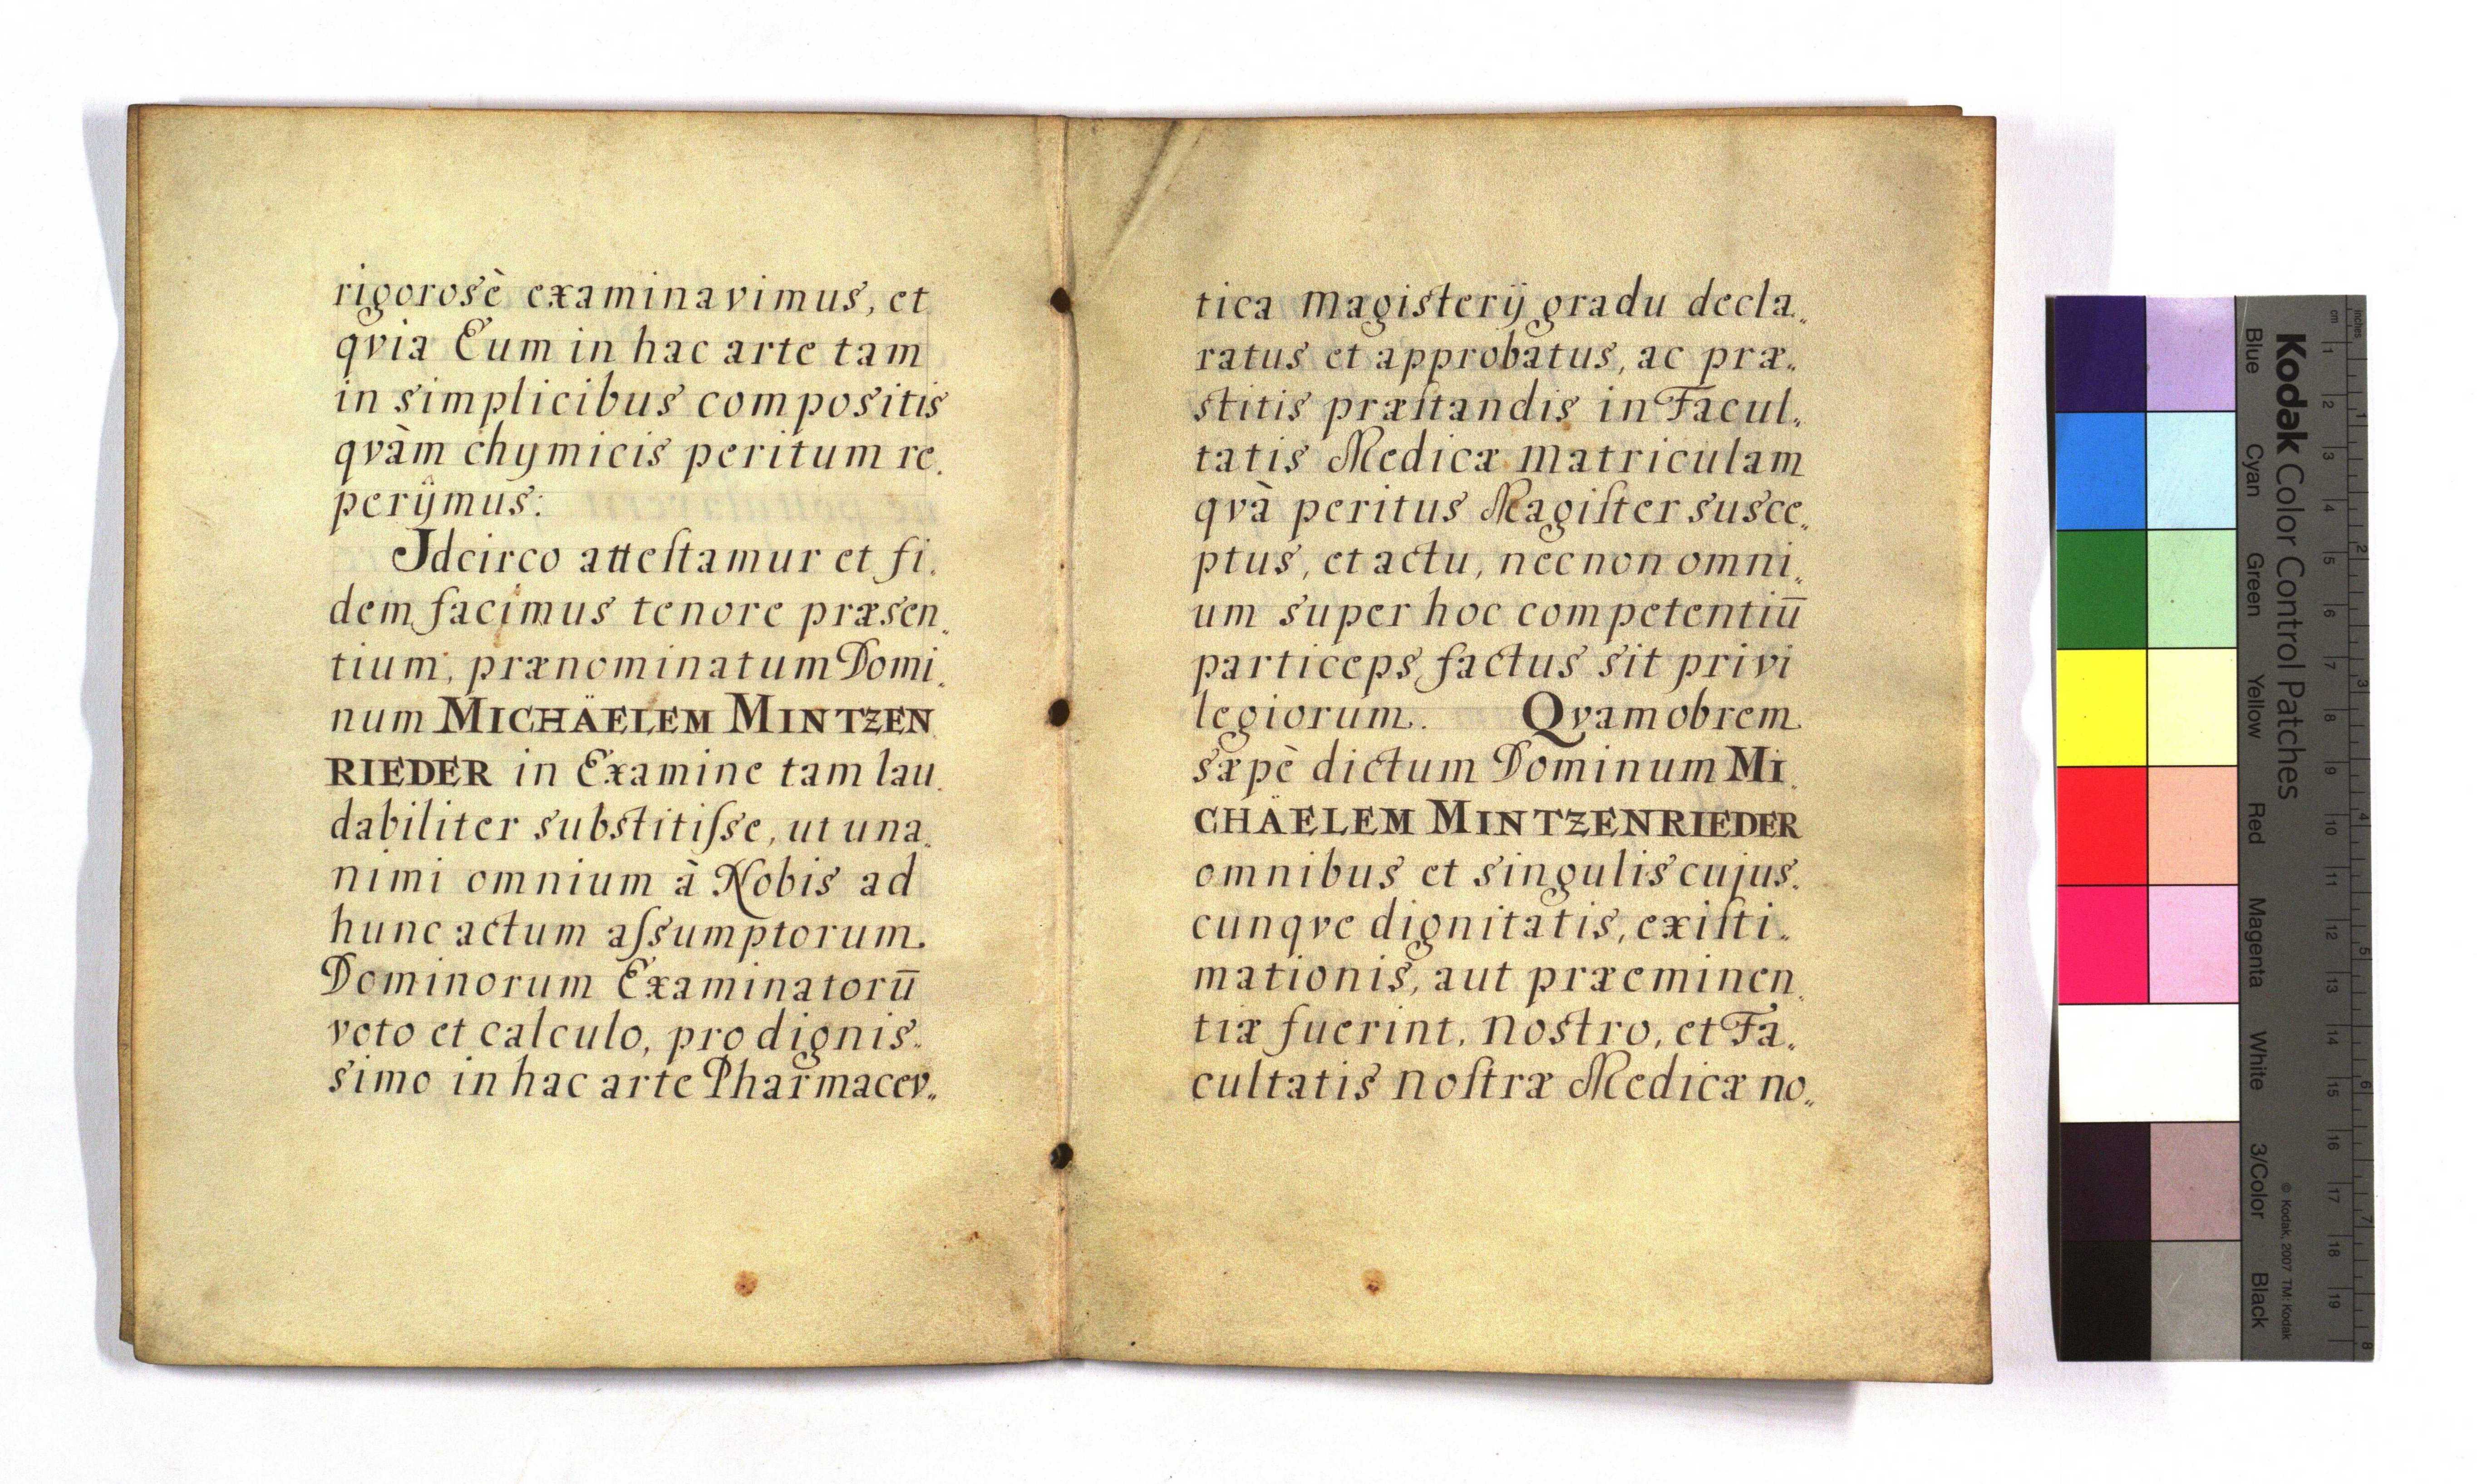 rigorosè examinavimus, et
qvia Eum in hac arte tam
in simplicibus compositis
qvàm chymicis peritum re.
perijmus:
Jdcirco atteſtamur et fi.
dem facimus tenore præsen.
tium, prænominatum Domi.
num MICHÄELEM MINTZEN.
RIEDER in Examine tam lau.
dabiliter substitiſse, ut una.
nimi omnium à Nobis ad
hunc actum aſsumptorum.
Dominorum Examinatorū
voto et calculo, pro dignis.
simo in hac arte Pharmacev„
tica magisterij gradu decla„
ratus et approbatus, ac præ„
stitis præſtandis in Facul„
tatis Medicæ matriculam
qvà peritus Magiſter susce„
ptus, et actu, necnon omni„
um super hoc competentiū
particeps factus sit privi
legiorum. Qvamobrem
sæpè dictum Dominum MI.
CHÄELEM MINTZENRIEDER
omnibus et singulis cujus.
cunqve dignitatis, exiſti„
mationis, aut præeminen.
tiæ fuerint, nostro, et Fa„
cultatis noſtræ Medicæ no„
Kodak Color Control Patches
© Kodak, 2007 TM: Kodak
Blue Cyan Green Yellow Red Magenta White 3/Color Black
inches 1 2 3 4 5 6 7 8
cm 1 2 3 4 5 6 7 8 9 10 11 12 13 14 15 16 17 18 19